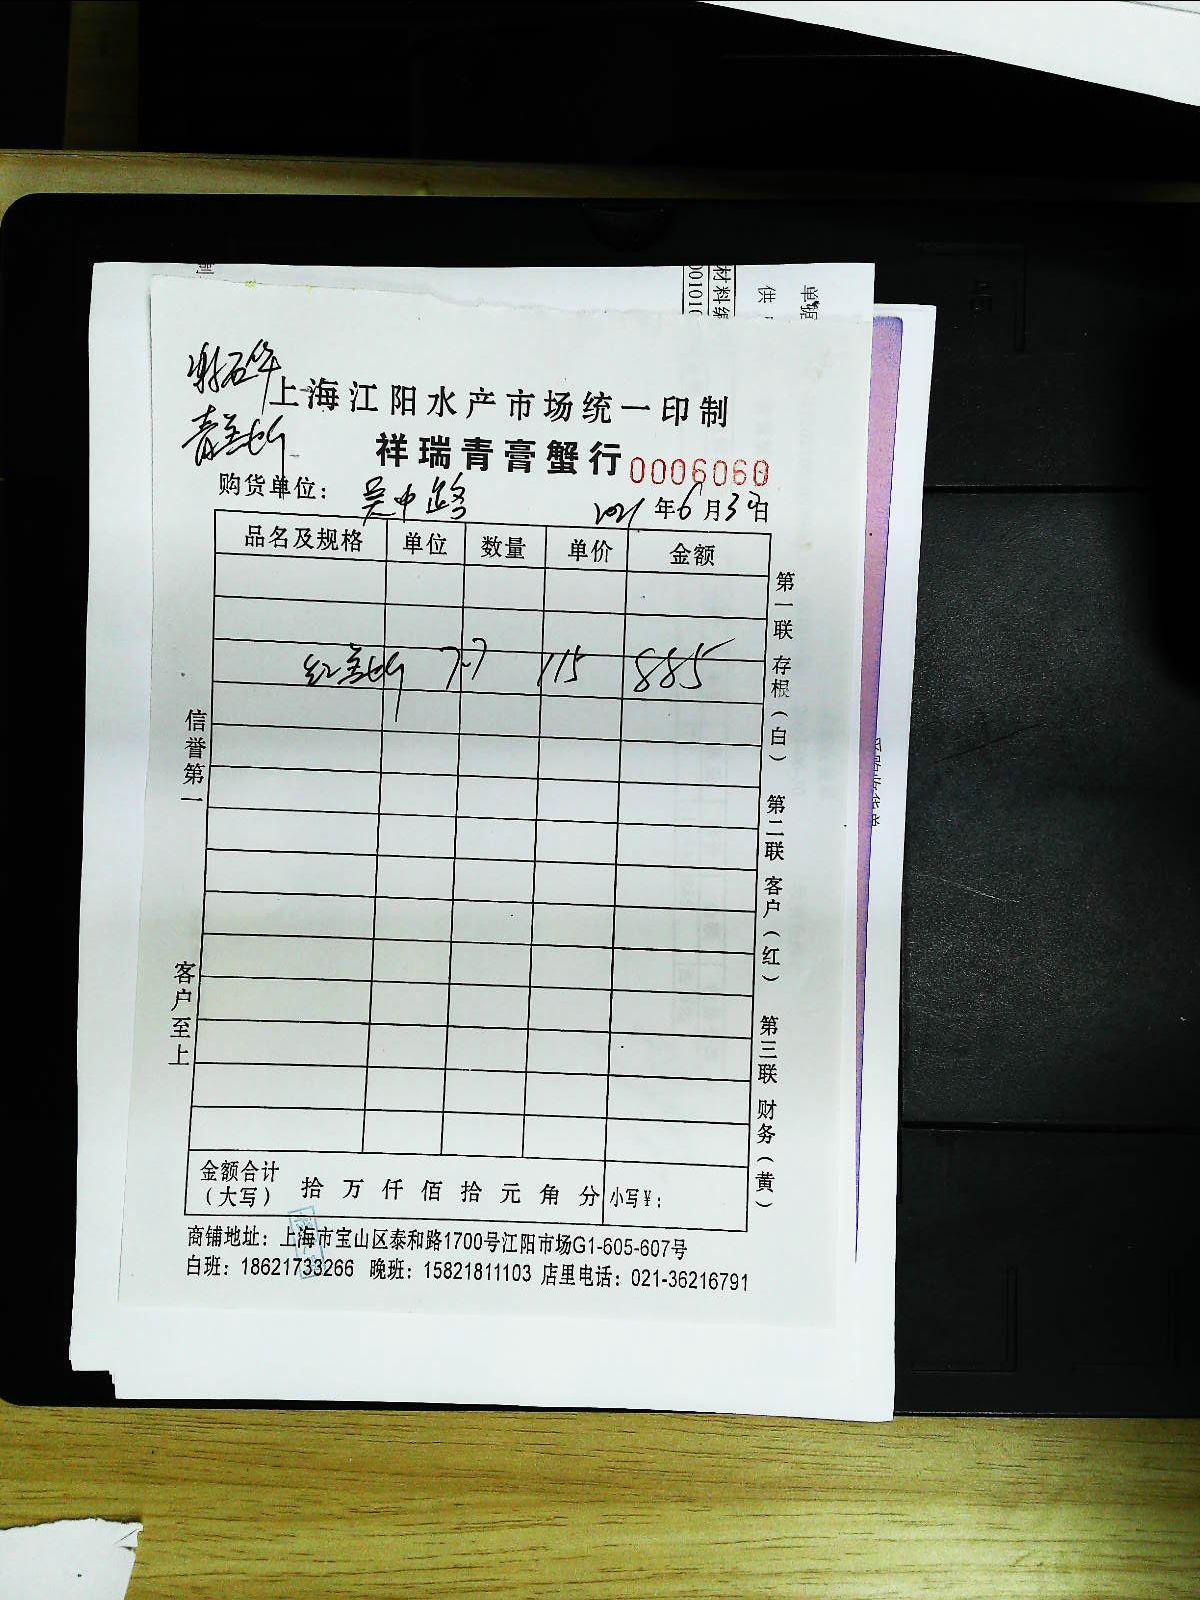 上海江阳水产市场统一印制
祥瑞青膏蟹行 0006060
购货单位： 吴中路 2021年6月3日
品名及规格 单位 数量 单价 金额
7.7 115 885
金额合计
（大写） 拾 万 仟 佰 拾 元 角 分 小写¥：
商铺地址：上海市宝山区泰和路1700号江阳市场G1-605-607号
白班：18621733266 晚班：15821811103 店里电话：021-36216791
信誉第一
客户至上
第一联 存根（白）
第二联 客户（红）
第三联 财务（黄）
材料编
001010
供
单据